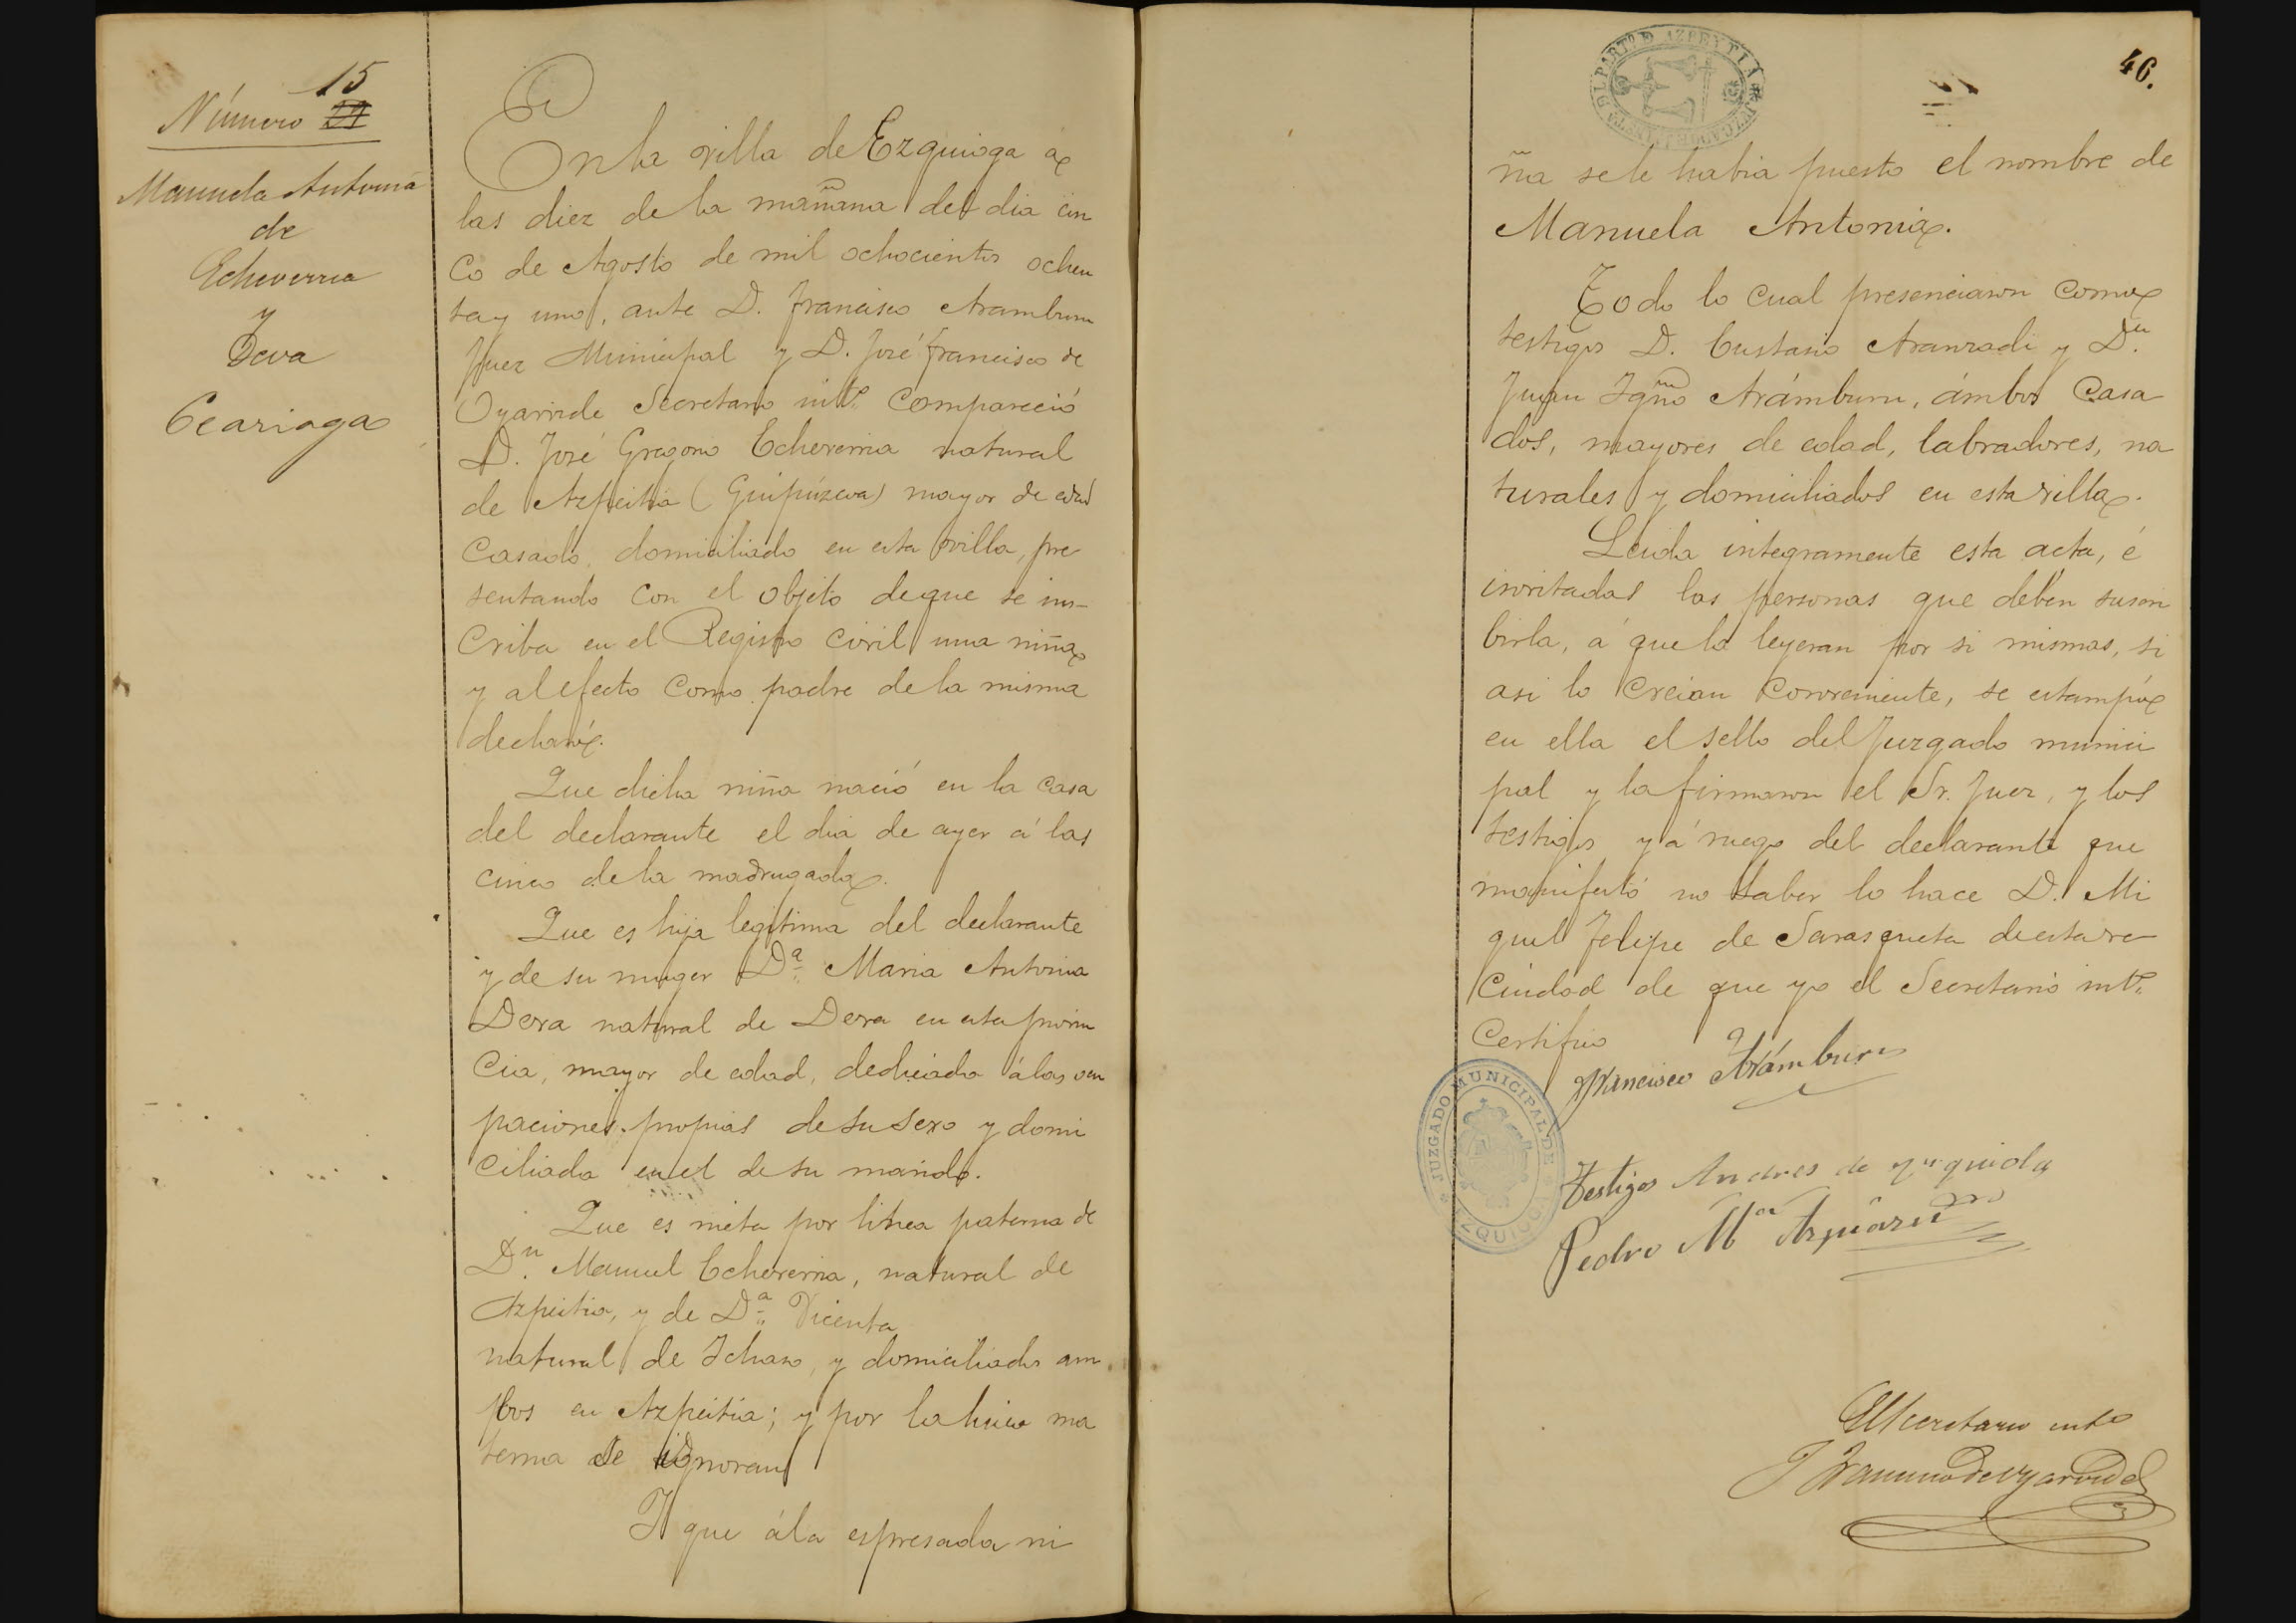 15
Número 21
Manuela Antonia
de
Echeverria
y
Deva
Ecariaga
En la villa de Ezquioga a
las diez de la mañana del dia cin
co de Agosto de mil ochocientos ochen
ta y uno, ante D. Francisco Aramburu
Juez Municipal y D. José Francisco de
Oyarvide Secretario intº compareció
D. José Gregorio Echeverria natural
de Azpeitia (Guipúzcoa) mayor de edad
Casado, domiciliado en esta villa, pre
sentando con el objeto de que se ins-
criba en el Registro civil una niña
y al efecto como padre de la misma
declaró.
Que dicha niña nació en la casa
del declarante el dia de ayer á las
cinco de la madrugada.
Que es hija legítima del declarante
y de su muger Dª Maria Antonia
Deva natural de Deva en esta provin
cia, mayor de edad, dedicada á las ocu
paciones propias de su sexo y domi
ciliada en el de su marido.
Que es nieta por linea paterna de
Dn Manuel Echeverria, natural de
Azpeitia, y de Dª Vicenta
natural de Ichaso, y domiciliados am
bos en Azpeitia; y por la linea ma
terna se ignoran
Y que á la espresada ni
PARTº D AZPEYTIA
46.
ña se le habia puesto el nombre de
Manuela Antonia.
Todo lo cual presenciaron como
testigos D. Eustasio Aranzadi y Dn
Juan Ignº Arámburu, ámbos casa
dos, mayores de edad, labradores, na
turales y domiciliados en esta villa.
Leida integramente esta acta, é
invitadas las personas que deben suscri
birla, á que la leyeran por si mismas, si
asi lo creian conveniente, se estampó
en ella el sello del Juzgado munici
pal y la firmaron el Sr. Juez, y los
testigos y á ruego del declarante que
manifestó no saber lo hace D. Mi
guel Felipe de Sarasqueta de esta ve
cindad de que yo el Secretario intº
Certifico
Francisco Arámburu
JUZGADO MUNICIPAL DE EZQUIOGA
Testigos Andres de
Pedro Mª
El Secretario intº
J Francisco de Oyarvide